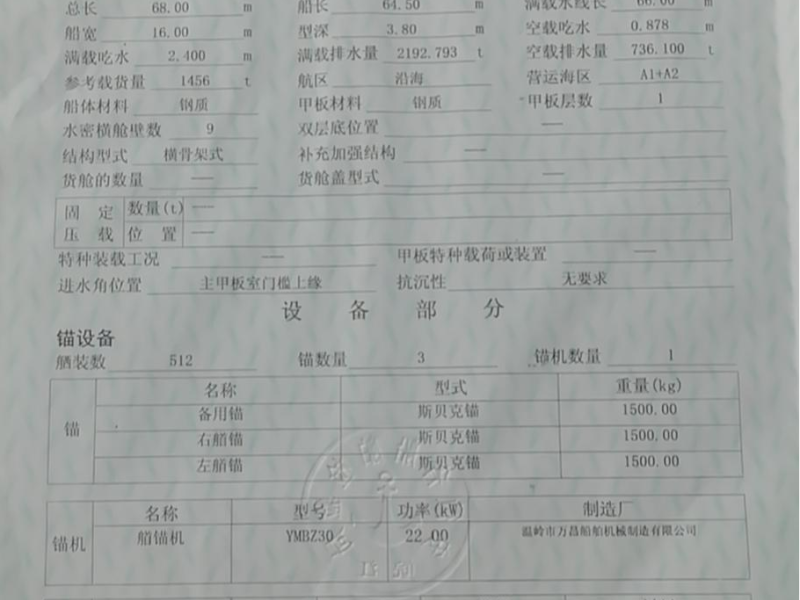 总长 68.00 m 船长 64.50 m 满载水线长 66.00 m
船宽 16.00 m 型深 3.80 m 空载吃水 0.878 m
满载吃水 2.400 m 满载排水量 2192.793 t 空载排水量 736.100 t
参考载货量 1456 t 航区 沿海 营运海区 A1+A2
船体材料 钢质 甲板材料 钢质 甲板层数 1
水密横舱壁数 9 双层底位置 —
结构型式 横骨架式 补充加强结构 —
货舱的数量 — 货舱盖型式 —
固定 数量(t) —
压载 位置 —
特种装载工况 — 甲板特种载荷或装置 —
进水角位置 主甲板室门槛上缘 抗沉性 无要求
设备部分
锚设备
舾装数 512 锚数量 3 锚机数量 1
名称 型式 重量(kg)
备用锚 斯贝克锚 1500.00
锚 右艏锚 斯贝克锚 1500.00
左艏锚 斯贝克锚 1500.00
名称 型号 功率(kW) 制造厂
锚机 艏锚机 YMBZ30 22.00 温岭市万昌船舶机械制造有限公司